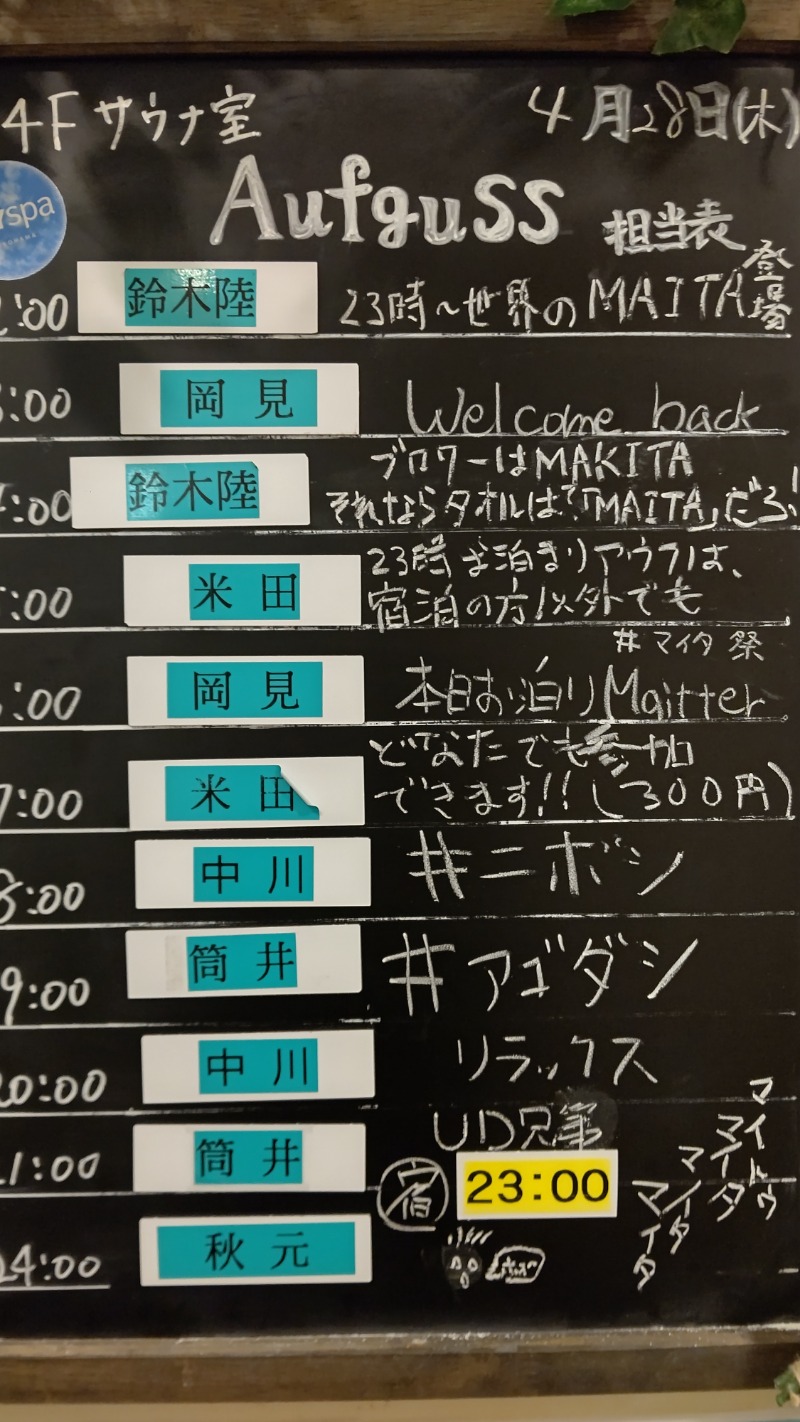 4Fサウナ室 4月28日(木)
spa
Aufguss 担当表
:00 鈴木陸 23時〜世界のMAITA登場
:00 岡見 Welcome back
:00 鈴木陸 ブロワーはMAKITA
それならタオルは?「MAITA」だろ!
:00 米田 23時お泊まりアウフは、
宿泊の方以外でも
#マイタ祭
:00 岡見 本日お泊りMaitter
どなたでも参加
7:00 米田 できます!!(300円)
8:00 中川 #ニボシ
9:00 筒井 #アゴダシ
20:00 中川 リラックス
1:00 筒井 UD兄弟
宿 23:00
24:00 秋元
マイトゥ
マイタ
マイタ
マイタ